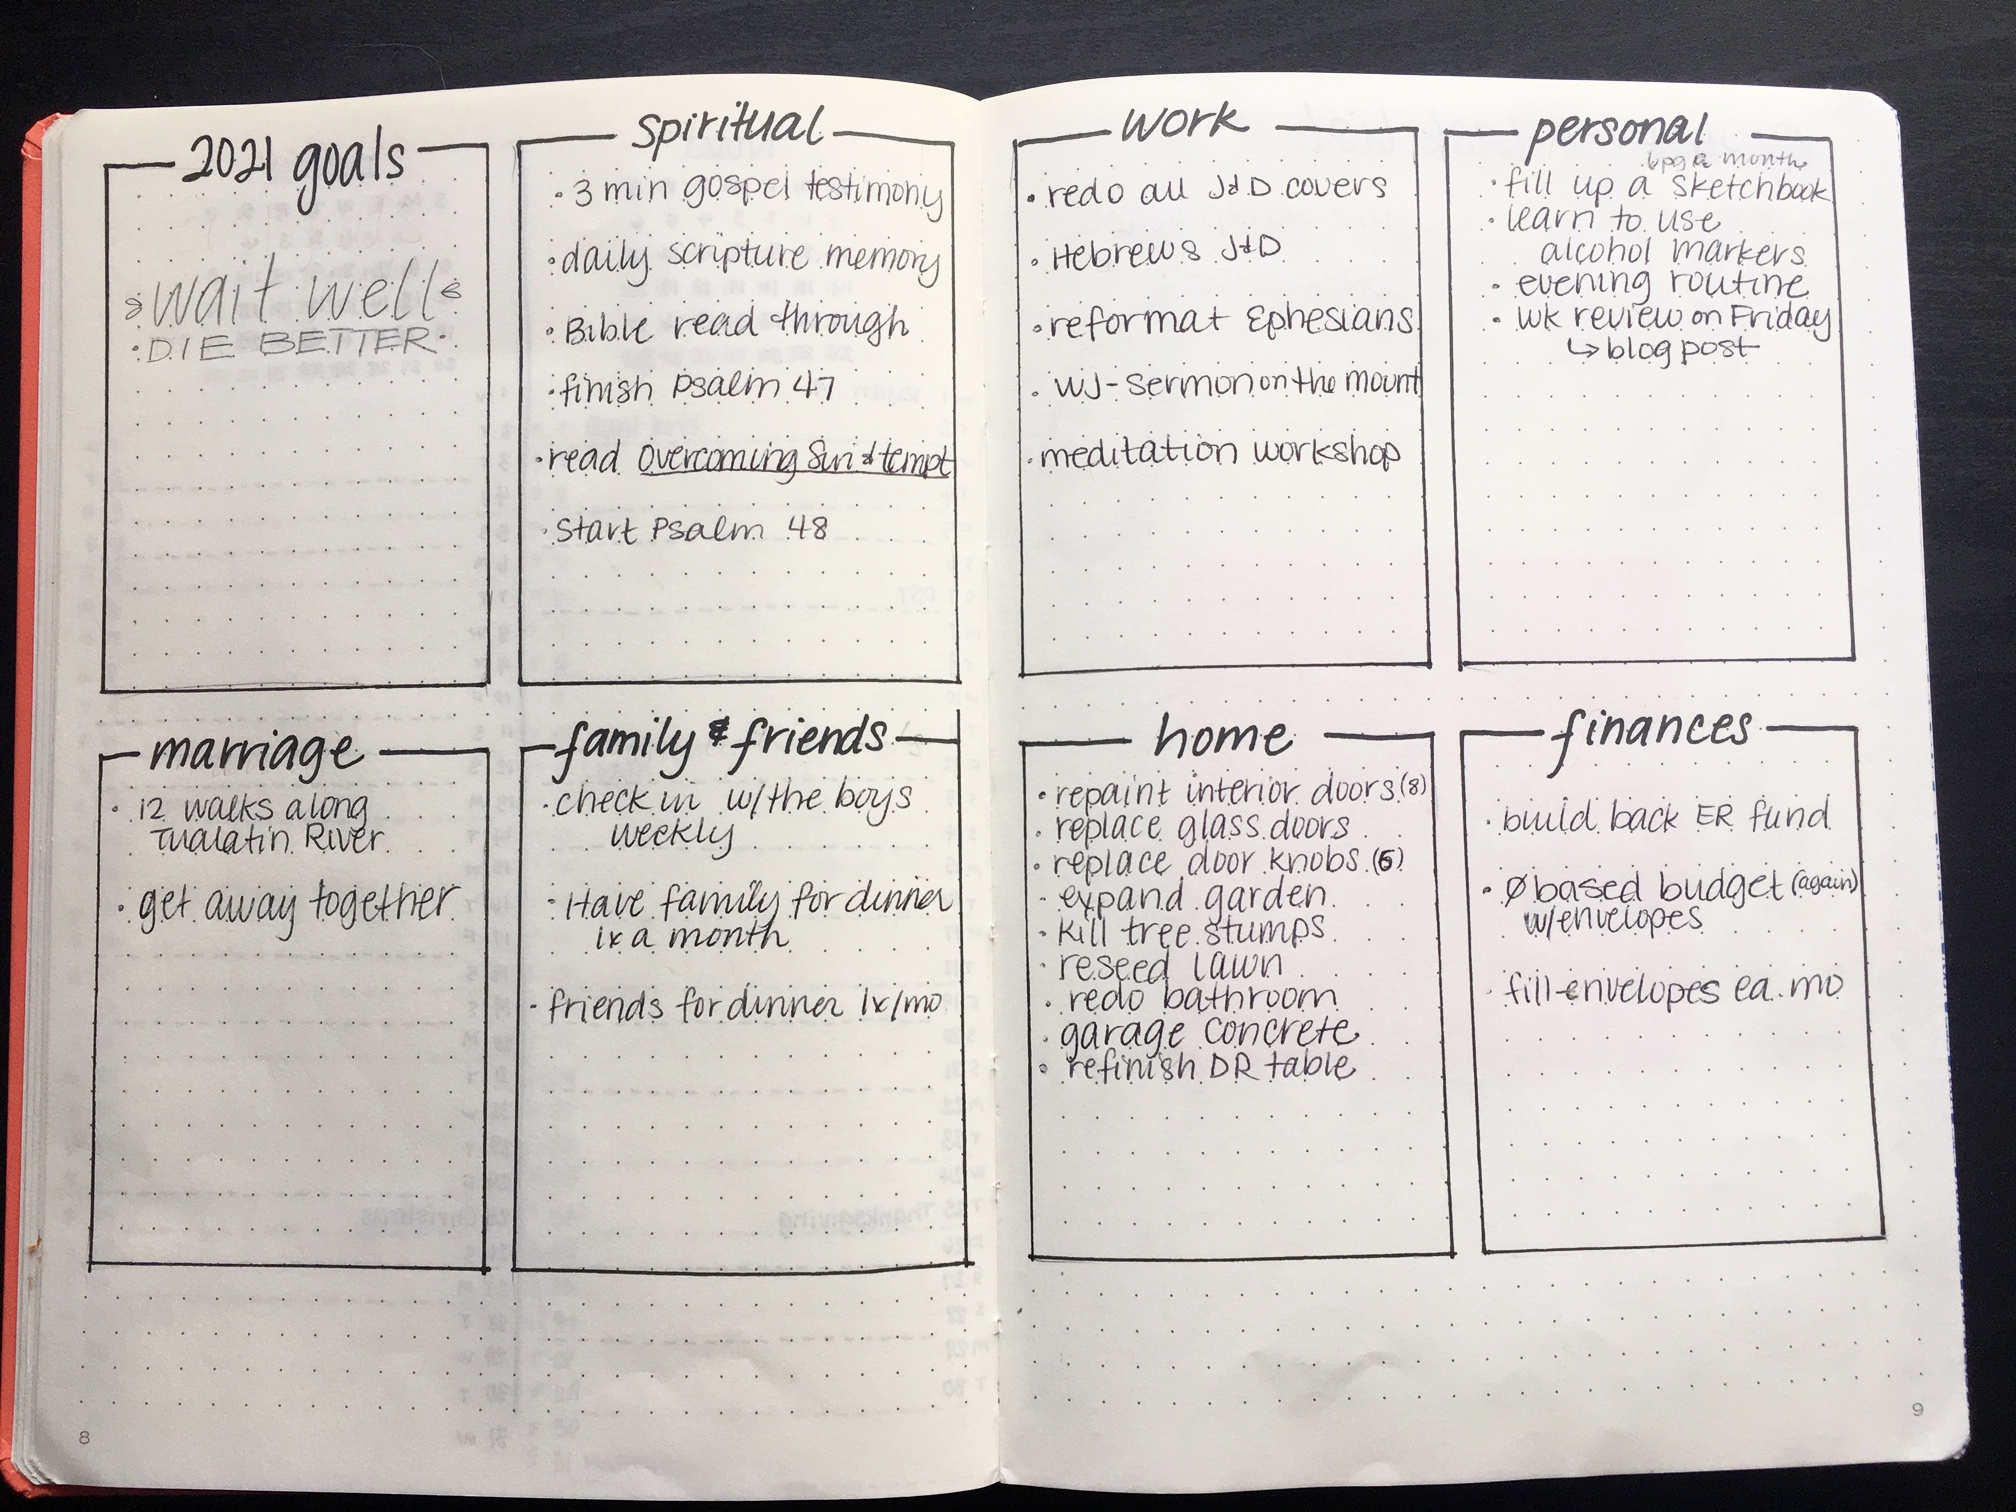 2021 goals
wait well
DIE BETTER
spiritual
· 3 min gospel testimony
· daily scripture memory
· Bible read through
· finish Psalm 47
· read Overcoming Sin & tempt
· Start Psalm 48
work
· redo all J&D covers
· Hebrews J&D
· reformat Ephesians
· WJ - Sermon on the mount
· meditation workshop
personal
a month
· fill up a sketchbook
· learn to use
alcohol markers
· evening routine
· wk review on Friday
↳ blog post
marriage
· 12 walks along
Tualatin River
· get away together
family & friends
· check in w/the boys
weekly
· Have family for dinner
1x a month
· friends for dinner 1x/mo
home
· repaint interior doors (8)
· replace glass doors
· replace door knobs (6)
· expand garden
· kill tree stumps
· reseed lawn
· redo bathroom
· garage concrete
· refinish DR table
finances
· build back ER fund
· Ø based budget (again)
w/envelopes
· fill envelopes ea. mo
8
9